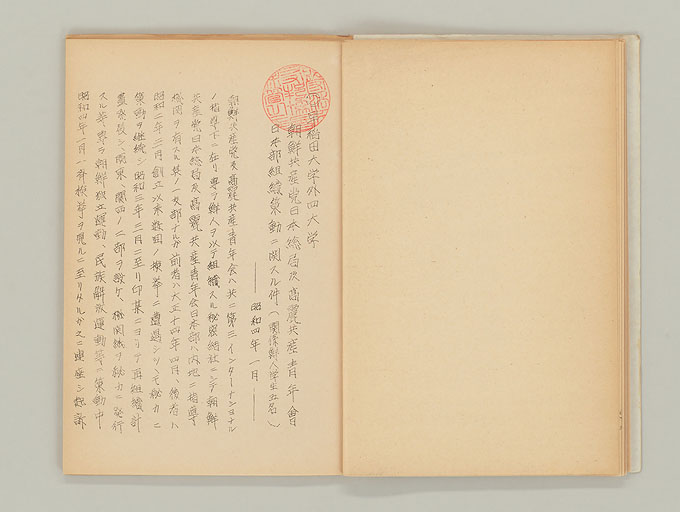 早稲田大学外四大学
朝鮮共産党日本総局及高麗共産青年会
日本部組織策動ニ関スル件（関係鮮人学生五名）
昭和四年一月
朝鮮共産党及高麗共産青年会ハ共ニ第三インターナショナル
ノ指導下ニ在リ専ラ鮮人ヲ以テ組織スル秘密結社ニシテ朝鮮
共産党日本総局及高麗共産青年会日本部ハ内地ニ指導
機関ヲ有スル其ノ一支部ナルガ前者ハ大正十四年四月、後者ハ
昭和二年二月創立以来数回ノ検挙ニ遭遇シツツモ秘カニ
策動ヲ継続シ昭和三年三月ニ至リ印某ニヨリテ再組織計
画セラレ、関東、関西ノ一部ヲ設ケ、機関紙ヲ秘カニ発行
スル等専ラ朝鮮独立運動、民族解放運動等ニ策動中
昭和四年一月一斉検挙ヲ見ルニ至リタルガ之ニ連座シ起訴